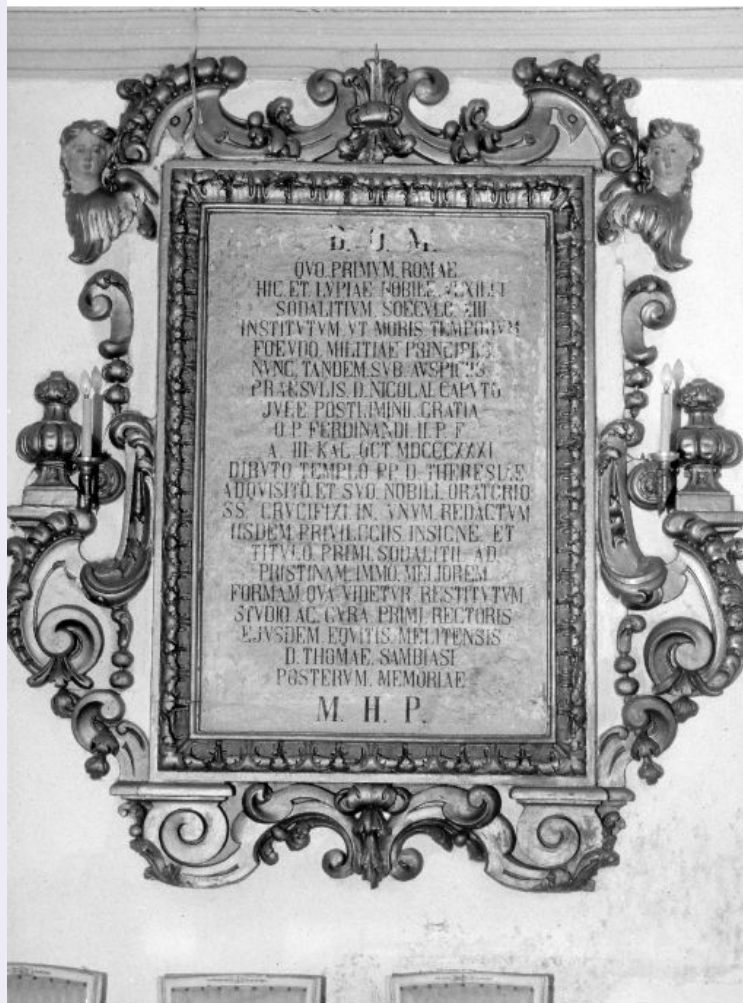 D. O. M.
QVO. PRIMVM. ROMAE
HIC. ET. LVPIAE NOBILE. VEXILLI
SODALITIVM. SOECVLO. XIII
INSTITVTVM. VT MORIS TEMPORVM
FOEVDO. MILITIAE PRINCIPES.
NVNC. TANDEM. SVB. AVSPICIIS
PRAESVLIS. D. NICOLAI. CAPVTO
JVRE POSTLIMINII GRATIA
O. P. FERDINANDI. II. P. F.
A. III. KAL. OCT. MDCCCXXXI
DIRVTO TEMPLO PP. D. THERESIAE
ADQVISITO. ET SVO. NOBILI. ORATORIO
SS. CRVCIFIXI. IN. VNVM. REDACTVM
IISDEM. PRIVILEGIIS INSIGNE. ET
TITVLO. PRIMI. SODALITII. AD
PRISTINAM. IMMO. MELIOREM
FORMAM. QVA. VIDETVR. RESTITVTVM
STVDIO. AC. CVRA. PRIMI. RECTORIS
EJVSDEM. EQVITIS. MELITENSIS
D. THOMAE. SAMBIASI
POSTERVM. MEMORIAE
M. H. P.